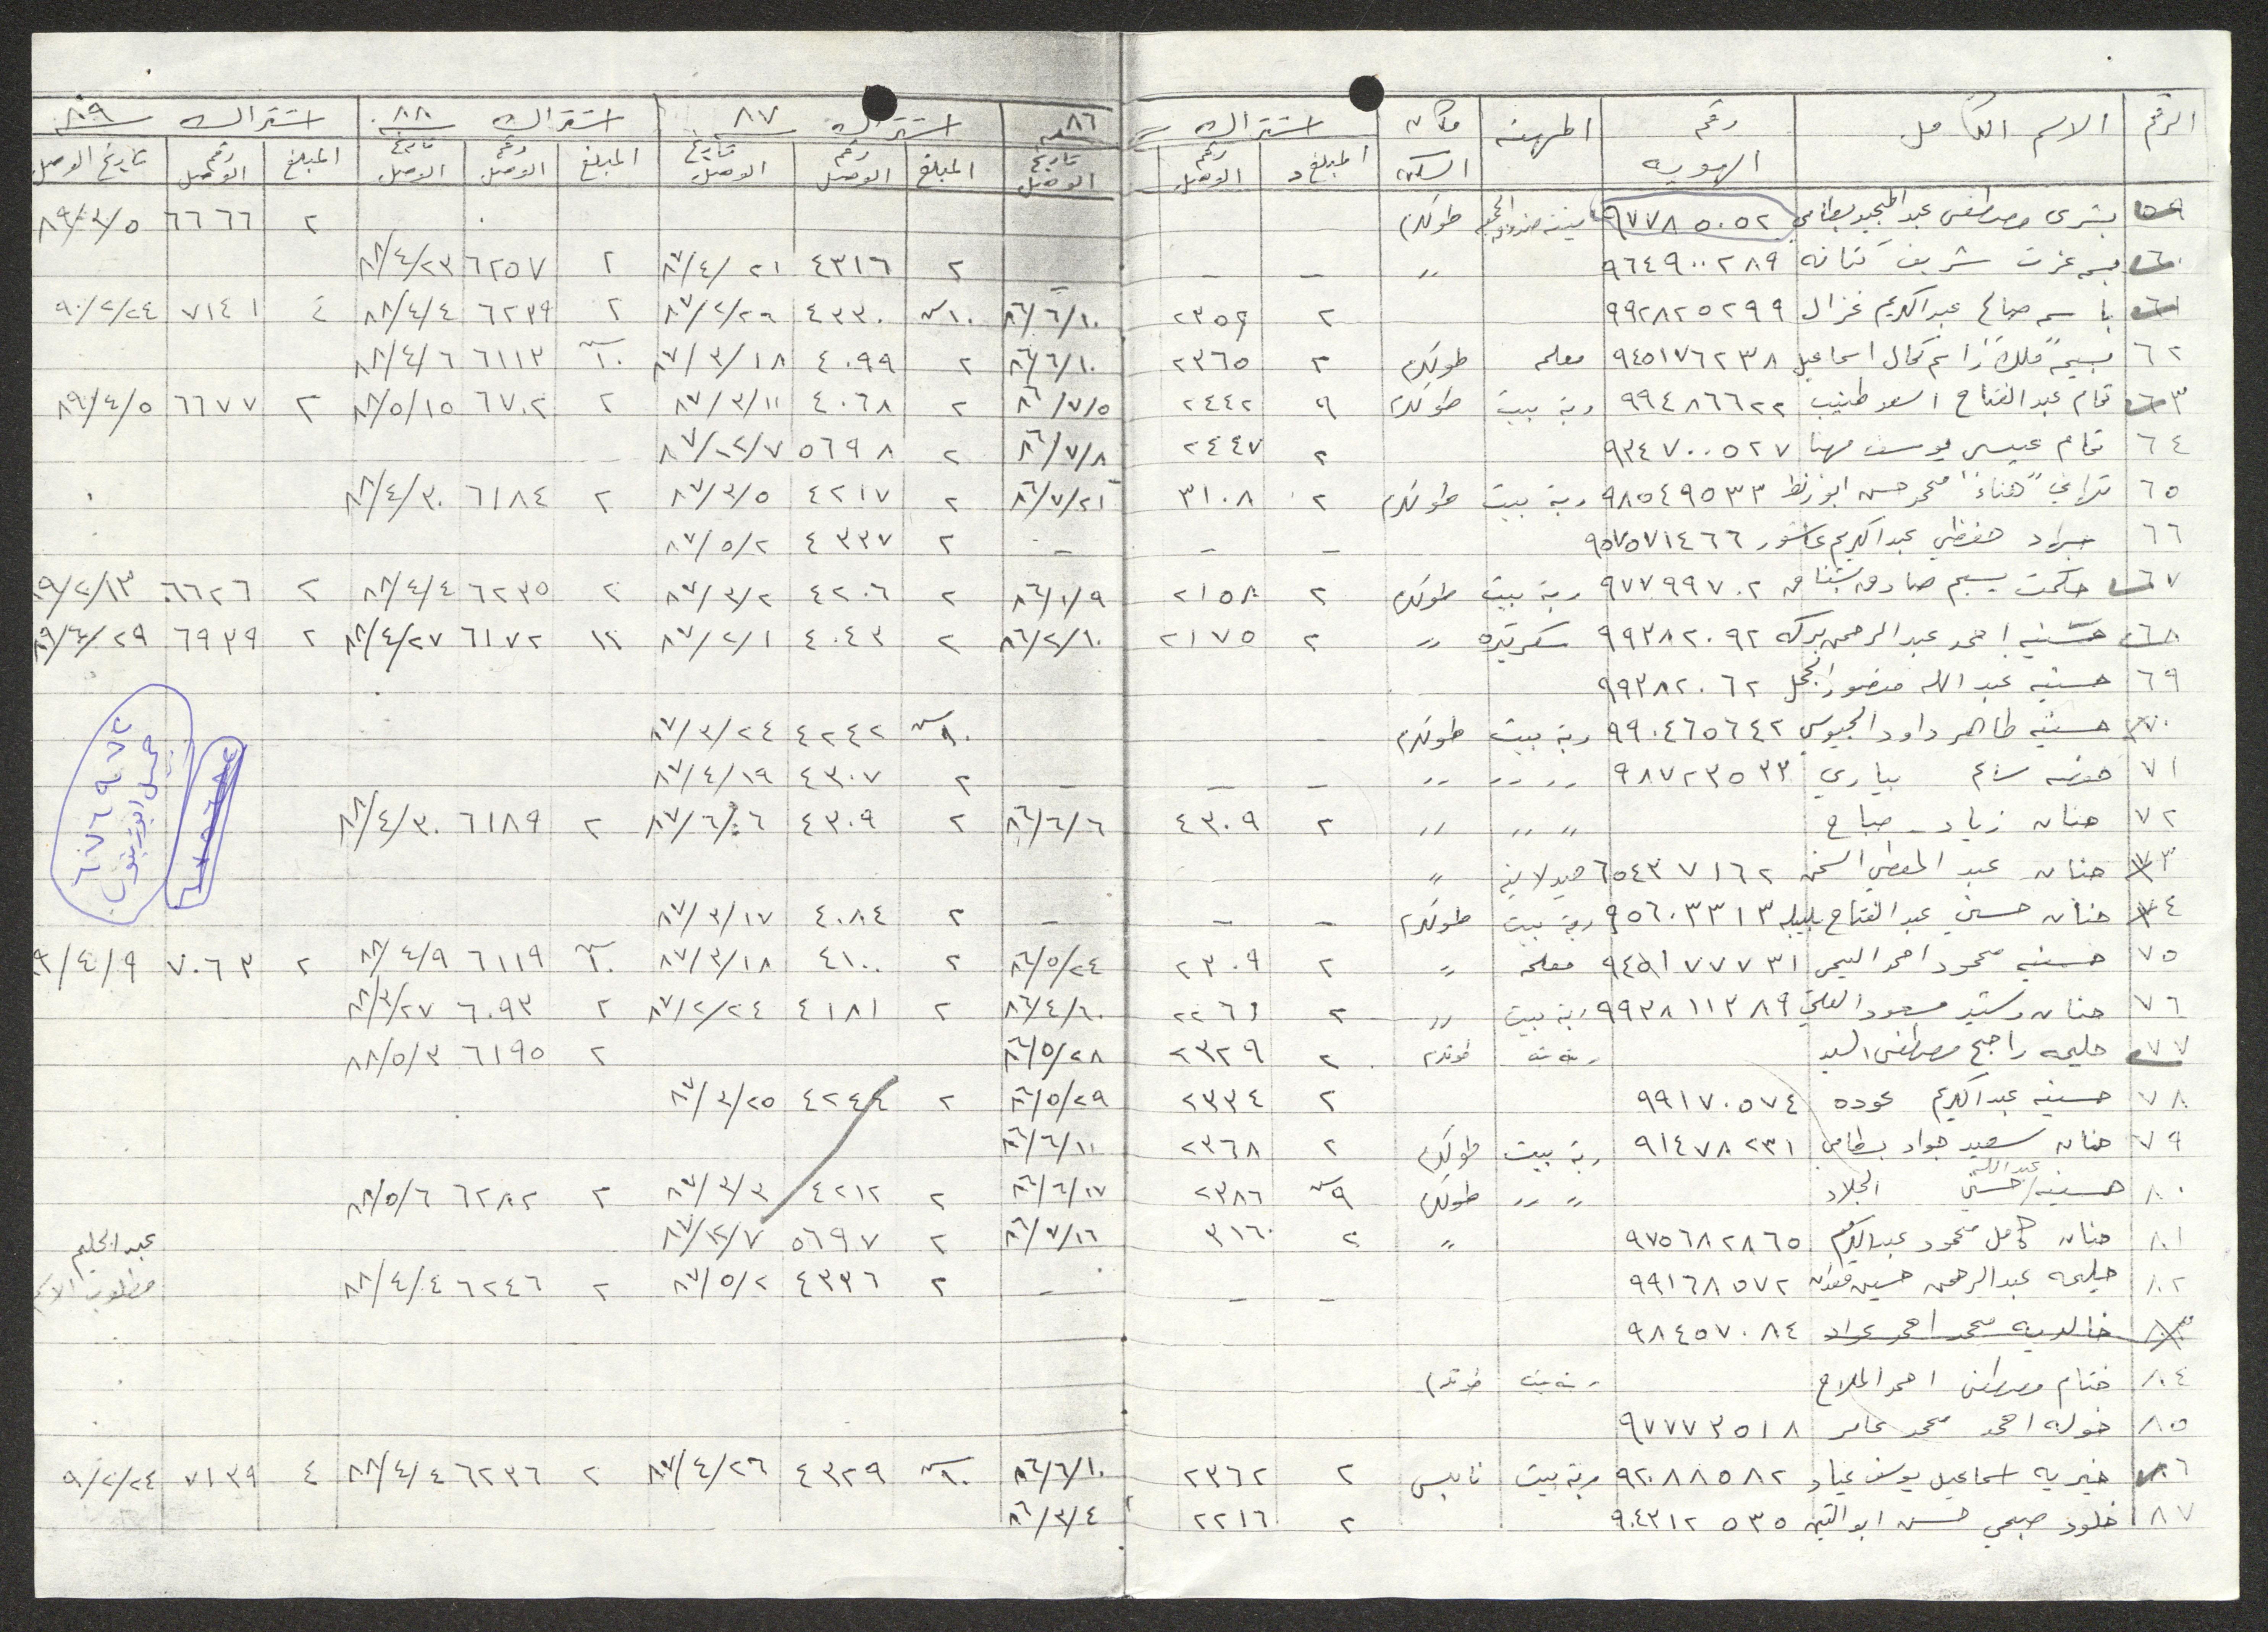 الرقم الاسم الكامل رقم الهويه المهنه مكان السكن اشتراك ٨٦ اشتراك ٨٧ اشتراك ٨٨ اشتراك ٨٩
المبلغ رقم الوصل تاريخ الوصل المبلغ رقم الوصل تاريخ الوصل المبلغ رقم الوصل تاريخ الوصل المبلغ رقم الوصل تاريخ الوصل
٥٩ بشرى مصطفى عبد المجيد بسطامي ٩٧٧٨٥٠٥٢ طولكرم ٢ ٦٦٦٦ ٨٩/٣/٥
٦٠ عزت شريف كتانه ٩٦٤٩٠٠٢٨٩ " – – ٢ ٤٣١٦ ٨٧/٤/٢١ ٢ ٦٢٥٧ ٨٨/٤/٢٣
٦١ باسمه صالح عبد الكريم غزال ٩٩٢٨٢٥٢٩٩ ٢ ٢٣٥٩ ٨٦/٦/١٠ ١٠ش ٤٣٣٠ ٨٧/٤/٢٦ ٢ ٦٢٣٩ ٨٨/٤/٤ ٤ ٧١٤١ ٩٠/٢/٢٤
٦٢ بسيمه "ملك" راسم كمال اسماعيل ٩٤٥١٧٦٢٣٨ معلمه طولكرم ٢ ٢٣٦٥ ٨٦/٦/١٠ ٢ ٤٠٩٩ ٨٧/٣/١٨ ١٠ش ٦١١٣ ٨٨/٤/٦
٦٣ تمام عبد الفتاح اسعد طنيب ٩٩٤٨٦٦٢٢ ربة بيت طولكرم ٩ ٢٤٤٢ ٨٦/٧/٥ ٢ ٤٠٦٨ ٨٧/٣/١١ ٢ ٦٧٠٢ ٨٨/٥/١٥ ٢ ٦٦٧٧ ٨٩/٤/٥
٦٤ تمام عيسى يوسف مهنا ٩٣٤٧٠٠٥٢٧ ٢ ٢٤٤٧ ٨٦/٧/٨ ٢ ٥٦٩٨ ٨٧/١٢/٧
٦٥ "هناء" محمد حسن ابو زنط ٩٨٥٤٩٥٣٣ ربة بيت طولكرم ٢ ٣١٠٨ ٨٦/٧/٢١ ٢ ٤٢١٧ ٨٧/٣/٥ ٢ ٦١٨٤ ٨٨/٤/٣٠
٦٦ جهاد حفظي عبد الكريم عاشور ٩٥٧٥٧١٤٦٦ – – – ٢ ٤٣٣٧ ٨٧/٥/٢
٦٧ حكمت بسيم صادق شناق ٩٧٧٩٩٧٠٢ ربة بيت طولكرم ٢ ٢١٥٨ ٨٦/١/٩ ٢ ٤٢٠٦ ٨٧/٣/٢ ٢ ٦٢٣٥ ٨٨/٤/٤ ٢ ٦٦٢٦ ٩/٢/١٣
٦٨ حسنيه احمد عبد الرحمن بركه ٩٩٣٨٢٠٩٢ سكرتيره " ٢ ٢١٧٥ ٨٦/٢/١٠ ٢ ٤٠٤٣ ٨٧/٢/١ ١٢ ٦١٧٢ ٨٨/٤/٢٧ ٢ ٦٩٣٩ ٨٩/٦/٢٩
٦٩ حسنيه عبد الله منصور الجمل ٩٩٣٨٢٠٦٢
٧٠ حسنيه طاهر داود الجيوسي ٩٩٠٤٦٥٦٤٢ ربة بيت طولكرم ١٠ش ٤٢٤٢ ٨٧/٣/٢٤
٧١ بياري ٩٨٧٢٣٥٣٣ " " " – – – ٢ ٤٣٠٧ ٨٧/٤/١٩
٧٢ حنان زياد صباح " " " ٢ ٤٣٠٩ ٨٦/٦/٦ ٢ ٤٣٠٩ ٨٧/٦/٦ ٢ ٦١٨٩ ٨٨/٤/٣٠
٧٣ حنان عبد المعطي السخن ٦٥٤٣٧١٦٢ صيدلانيه "
٧٤ حنان حسني عبد الفتاح بليله ٩٥٦٠٣٣١٣ ربة بيت طولكرم – – – ٢ ٤٠٨٤ ٨٧/٣/١٧
٧٥ حسنيه محمود احمد ٩٤٥١٧٧٧٣١ معلمه " ٢ ٢٣٠٩ ٨٦/٥/٢٤ ٢ ٤١٠٠ ٨٧/٣/١٨ ١٠ش ٦١١٩ ٨٨/٤/٩ ٢ ٧٠٦٣ ٩/٤/٩
٧٦ حنان رشيد مسعود العلي ٩٩٣٨١١٣٨٩ ربة بيت " ٢ ٢٢٦١ ٨٦/٤/١٠ ٢ ٤١٨١ ٨٧/٢/٢٤ ٢ ٦٠٩٣ ٨٨/٣/٢٧
٧٧ حليمه راجح مصطفى السيد ربة بيت طولكرم ٢ ٢٣٢٩ ٨٦/٥/٢٨ ٢ ٦١٩٥ ٨٨/٥/٣
٧٨ حسنيه عبد الكريم عوده ٩٩١٧٠٥٧٤ ٢ ٢٣٣٤ ٨٦/٥/٢٩ ٢ ٤٢٤٤ ٨٧/٣/٢٥
٧٩ حنان سعيد جواد بسطامي ٩١٤٧٨٢٣١ ربة بيت طولكرم ٢ ٢٣٦٨ ٨٦/٦/١١
٨٠ حسنيه / حسني عبد الله الجلاد " " طولكرم ٩ش ٢٣٨٦ ٨٦/٦/١٧ ٢ ٤٢١٢ ٨٧/٣/٣ ٢ ٦٢٨٢ ٨٨/٥/٦
٨١ حنان كامل محمود عبد الكريم ٩٧٥٦٨٢٨٦٥ " ٢ ٣١٦٠ ٨٦/٧/١٦ ٢ ٥٦٩٧ ٨٧/١٢/٧ عبد الحليم
٨٢ حليمه عبد الرحمن حسين ٩٩١٦٨٥٧٢ – – – ٢ ٤٣٣٦ ٨٧/٥/٢ ٢ ٦٢٤٦ ٨٨/٤/٤ مطلوب
٨٣ خالديه محمد احمد عراد ٩٨٤٥٧٠٨٤
٨٤ ختام مصطفى احمد الملاح ربة بيت طولكرم
٨٥ خوله احمد محمد عامر ٩٧٧٧٣٥١٨
٨٦ خيريه اسماعيل يوسف عياد ٩٢٠٨٨٥٨٢ ربة بيت نابلس ٢ ٢٣٦٢ ٨٦/٦/١٠ ١٠ش ٤٣٢٩ ٨٧/٤/٢٦ ٢ ٦٢٣٦ ٨٨/٤/٤ ٤ ٧١٣٩ ٩/٢/٢٤
٨٧ خلود صبحي حسن ابو التين ٩٠٤٣١٢٥٣٥ ٢ ٢٢١٦ ٨٦/٣/٤
٦٧٦٩٧٢